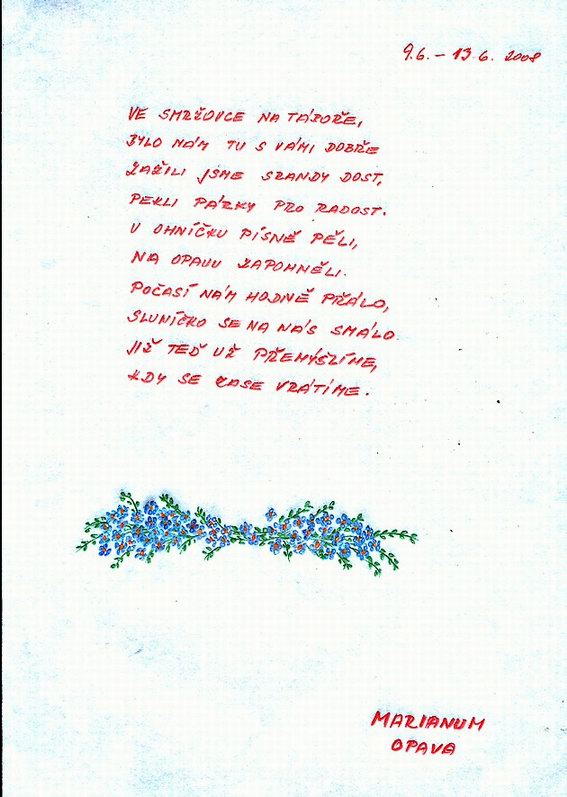 9.6. – 13.6. 2008
VE SMRŽOVCE NA TÁBOŘE,
BYLO NÁM TU S VÁMI DOBŘE
ZAŽILI JSME SRANDY DOST,
PEKLI PÁRKY PRO RADOST.
U OHNÍČKU PÍSNĚ PĚLI,
NA OPAVU ZAPOMNĚLI.
POČASÍ NÁM HODNĚ PŘÁLO,
SLUNÍČKO SE NA NÁS SMÁLO
JIŽ TEĎ UŽ PŘEMÝŠLÍME,
KDY SE ZASE VRÁTÍME.
MARIANUM
OPAVA